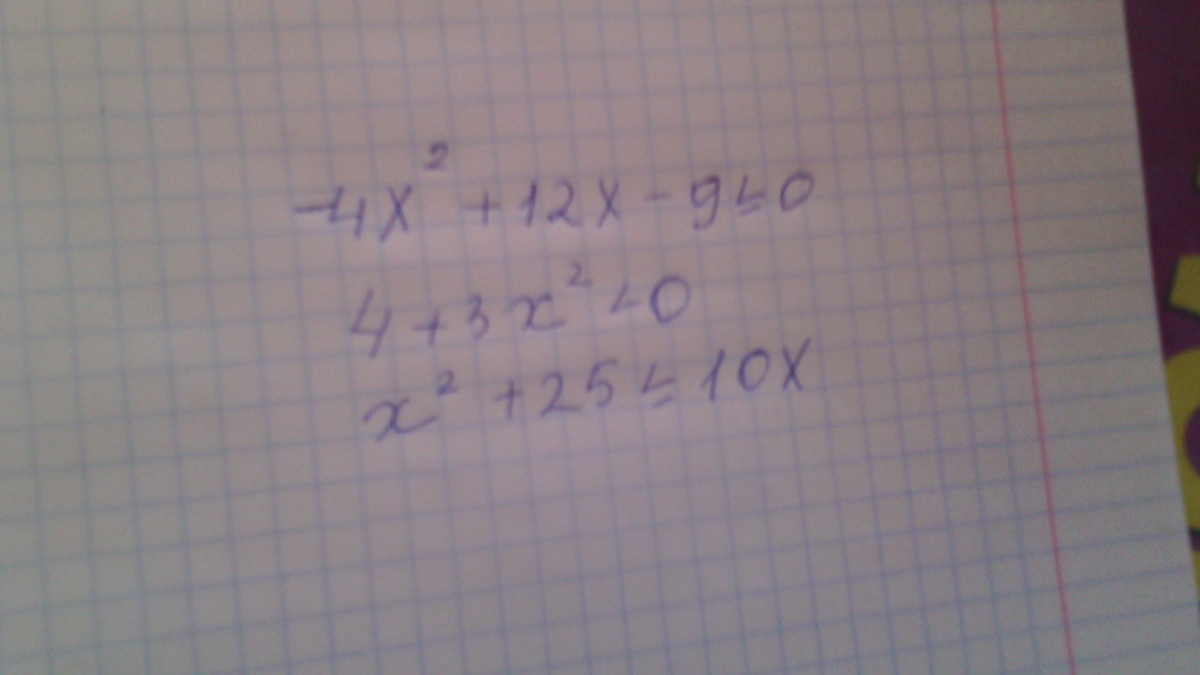 -4x² + 12x - 9 ≤ 0
4 + 3x² < 0
x² + 25 ≤ 10x